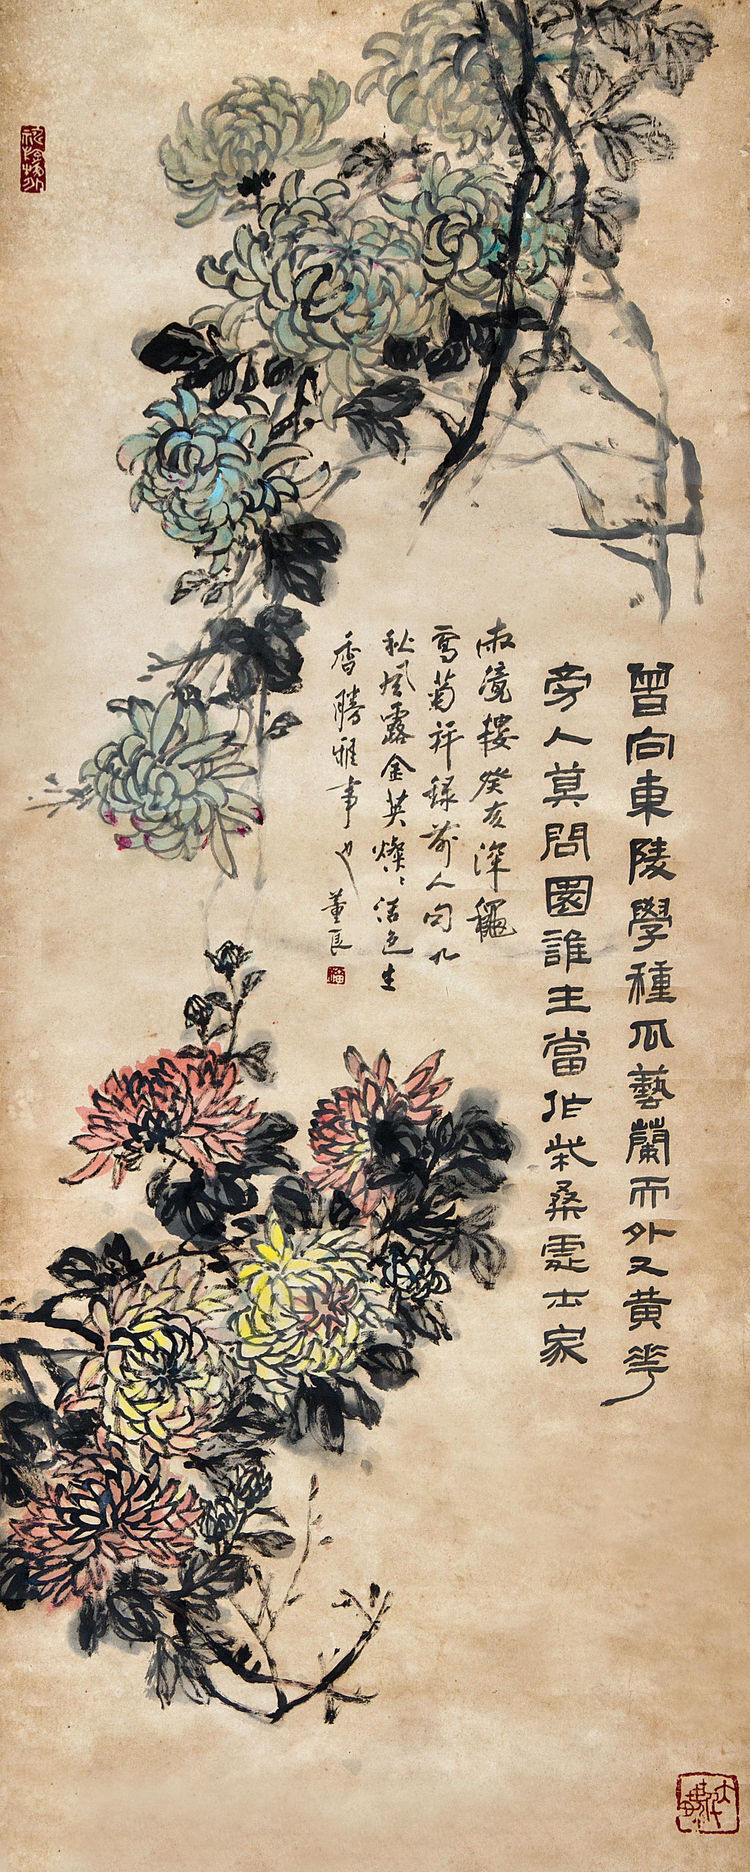 曾向東陵學種瓜藝蘭而外又黃華
旁人莫問園誰主當作柴桑處士家
寂境樓癸亥深龝
寫菊并錄前人句九
秋風露金英燦燦活色生
香勝雅事也
董良